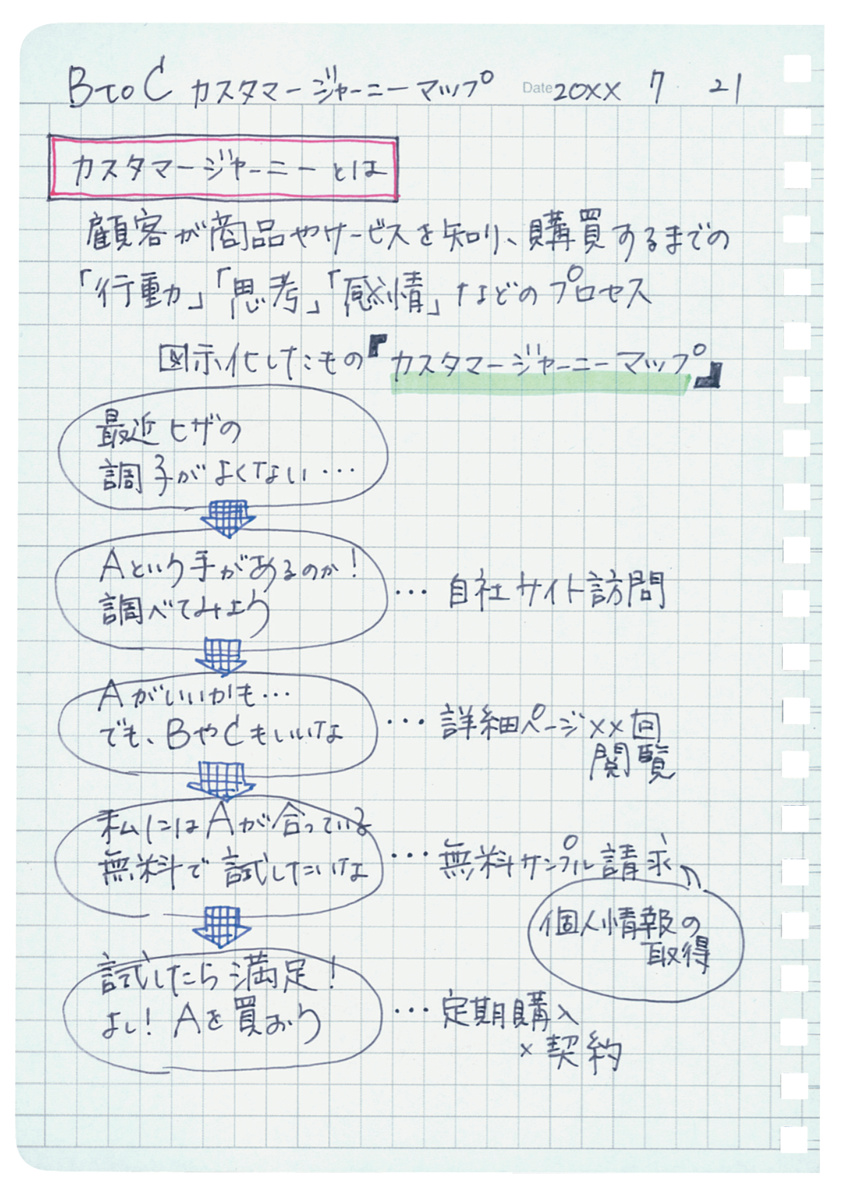 BtoC カスタマージャーニーマップ Date 20XX 7 21
カスタマージャーニーとは
顧客が商品やサービスを知り、購買するまでの
「行動」「思考」「感情」などのプロセス
図示化したもの『カスタマージャーニーマップ』
最近ヒザの
調子がよくない…
Aという手があるのか!
調べてみよう
… 自社サイト訪問
Aがいいかも…
でも、BやCもいいな
… 詳細ページ××回
閲覧
私にはAが合っている
無料で試したいな
… 無料サンプル請求
個人情報の
取得
試したら満足!
よし!Aを買おう
… 定期購入
×契約